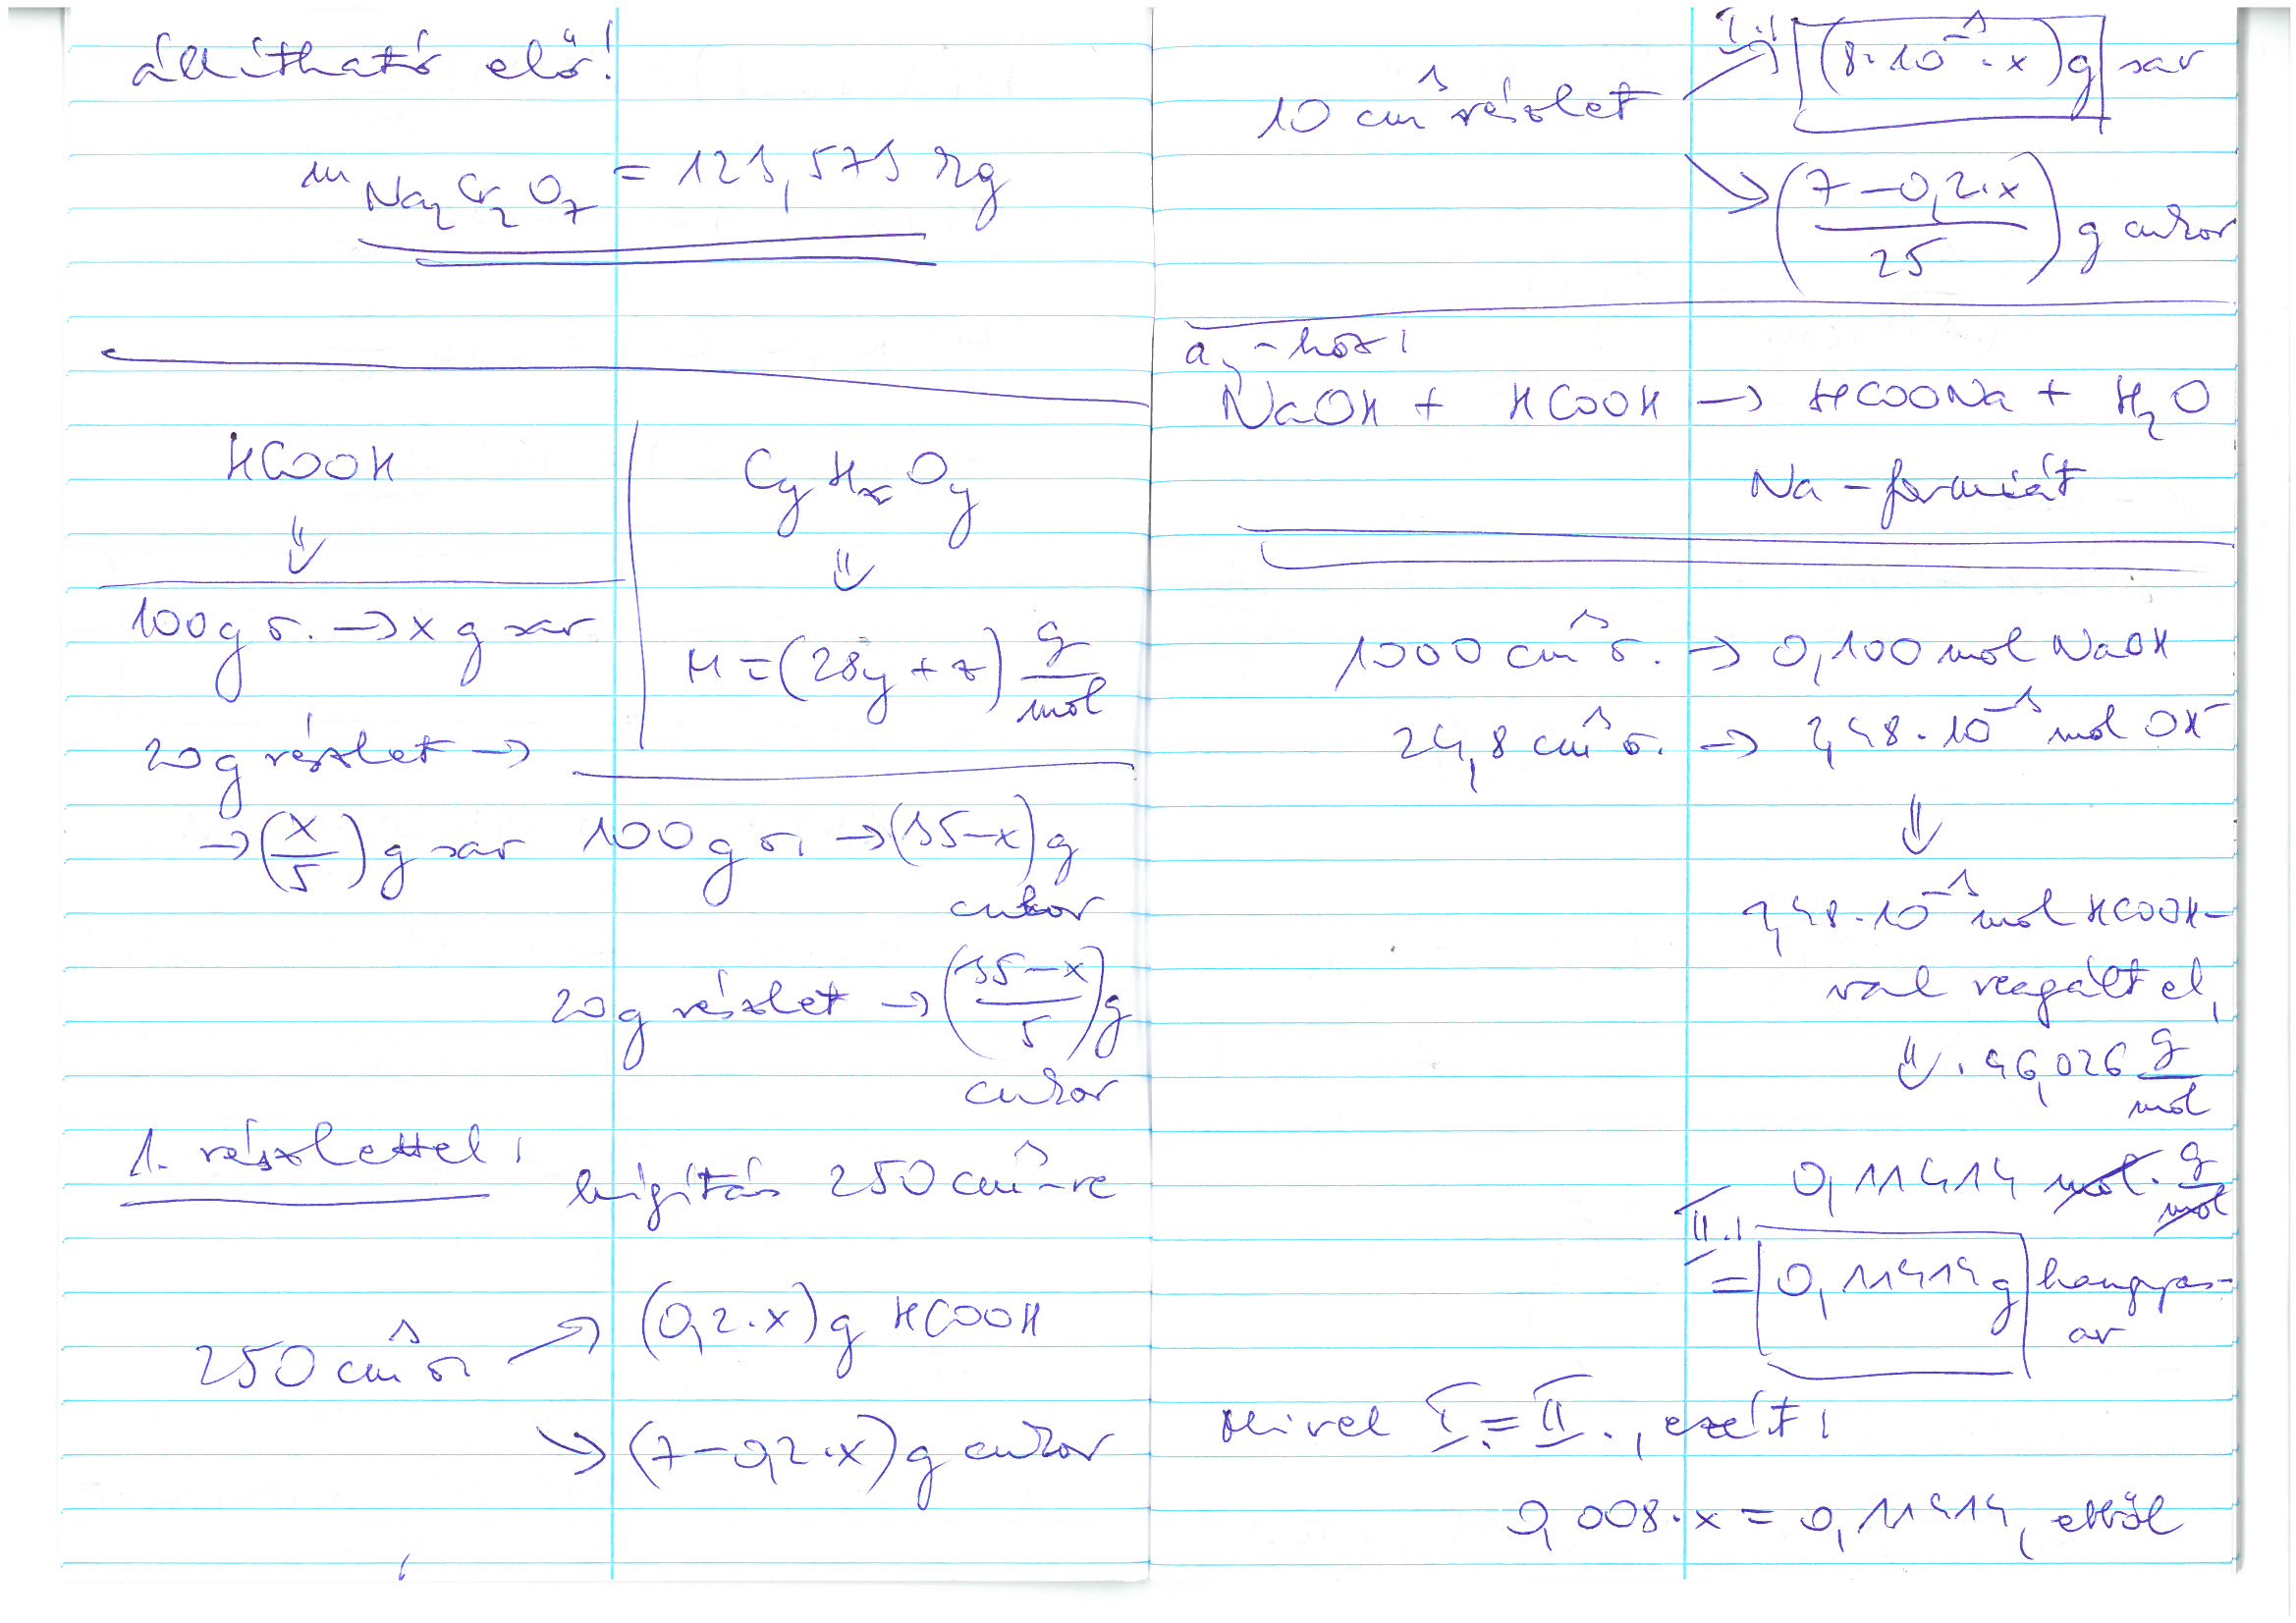 állítható elő!
m Na₂Cr₂O₇ = 123,573 kg
HCOOH
⇓
100g o. → x g sav
20g részlet →
→ (x/5) g sav
CyHzOy
⇓
M = (28y + z) g/mol
100g o. → (35-x) g
cukor
20g részlet → ((35-x)/5) g
cukor
1. részlettel:
hígítás 250 cm³-re
250 cm³ o. ↗ (0,2·x) g HCOOH
↘ (7-0,2·x) g cukor
10 cm³ részlet ↗ I.: (8·10⁻³·x) g sav
↘ ((7-0,2·x)/25) g cukor
a,-hoz:
NaOH + HCOOH → HCOONa + H₂O
Na-formiát
1000 cm³ o. → 0,100 mol NaOH
24,8 cm³ o. → 2,48·10⁻³ mol OH⁻
⇓
2,48·10⁻³ mol HCOOH-
val reagált el,
⇓ ·46,026 g/mol
0,11414 mol · g/mol
II.:
= 0,11414 g hangyas-
av
Mivel I. = II., ezért:
0,008·x = 0,11414, ebből